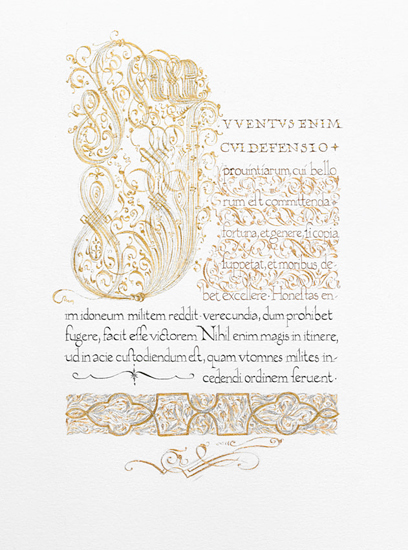 IVVENTVS ENIM
CVI DEFENSIO +
prouintiarum, cui bello
rum eſt committenda
fortuna, et genere, ſi copia
ſuppetat, et moribus de-
bet excellere· Honeſtas en-
im idoneum militem reddit· verecundia, dum prohibet
fugere, facit eſſe victorem· Nihil enim magis in itinere,
ud in acie cuſtodiendum eſt, quam vtomnes milites in-
cedendi ordinem ſeruent·